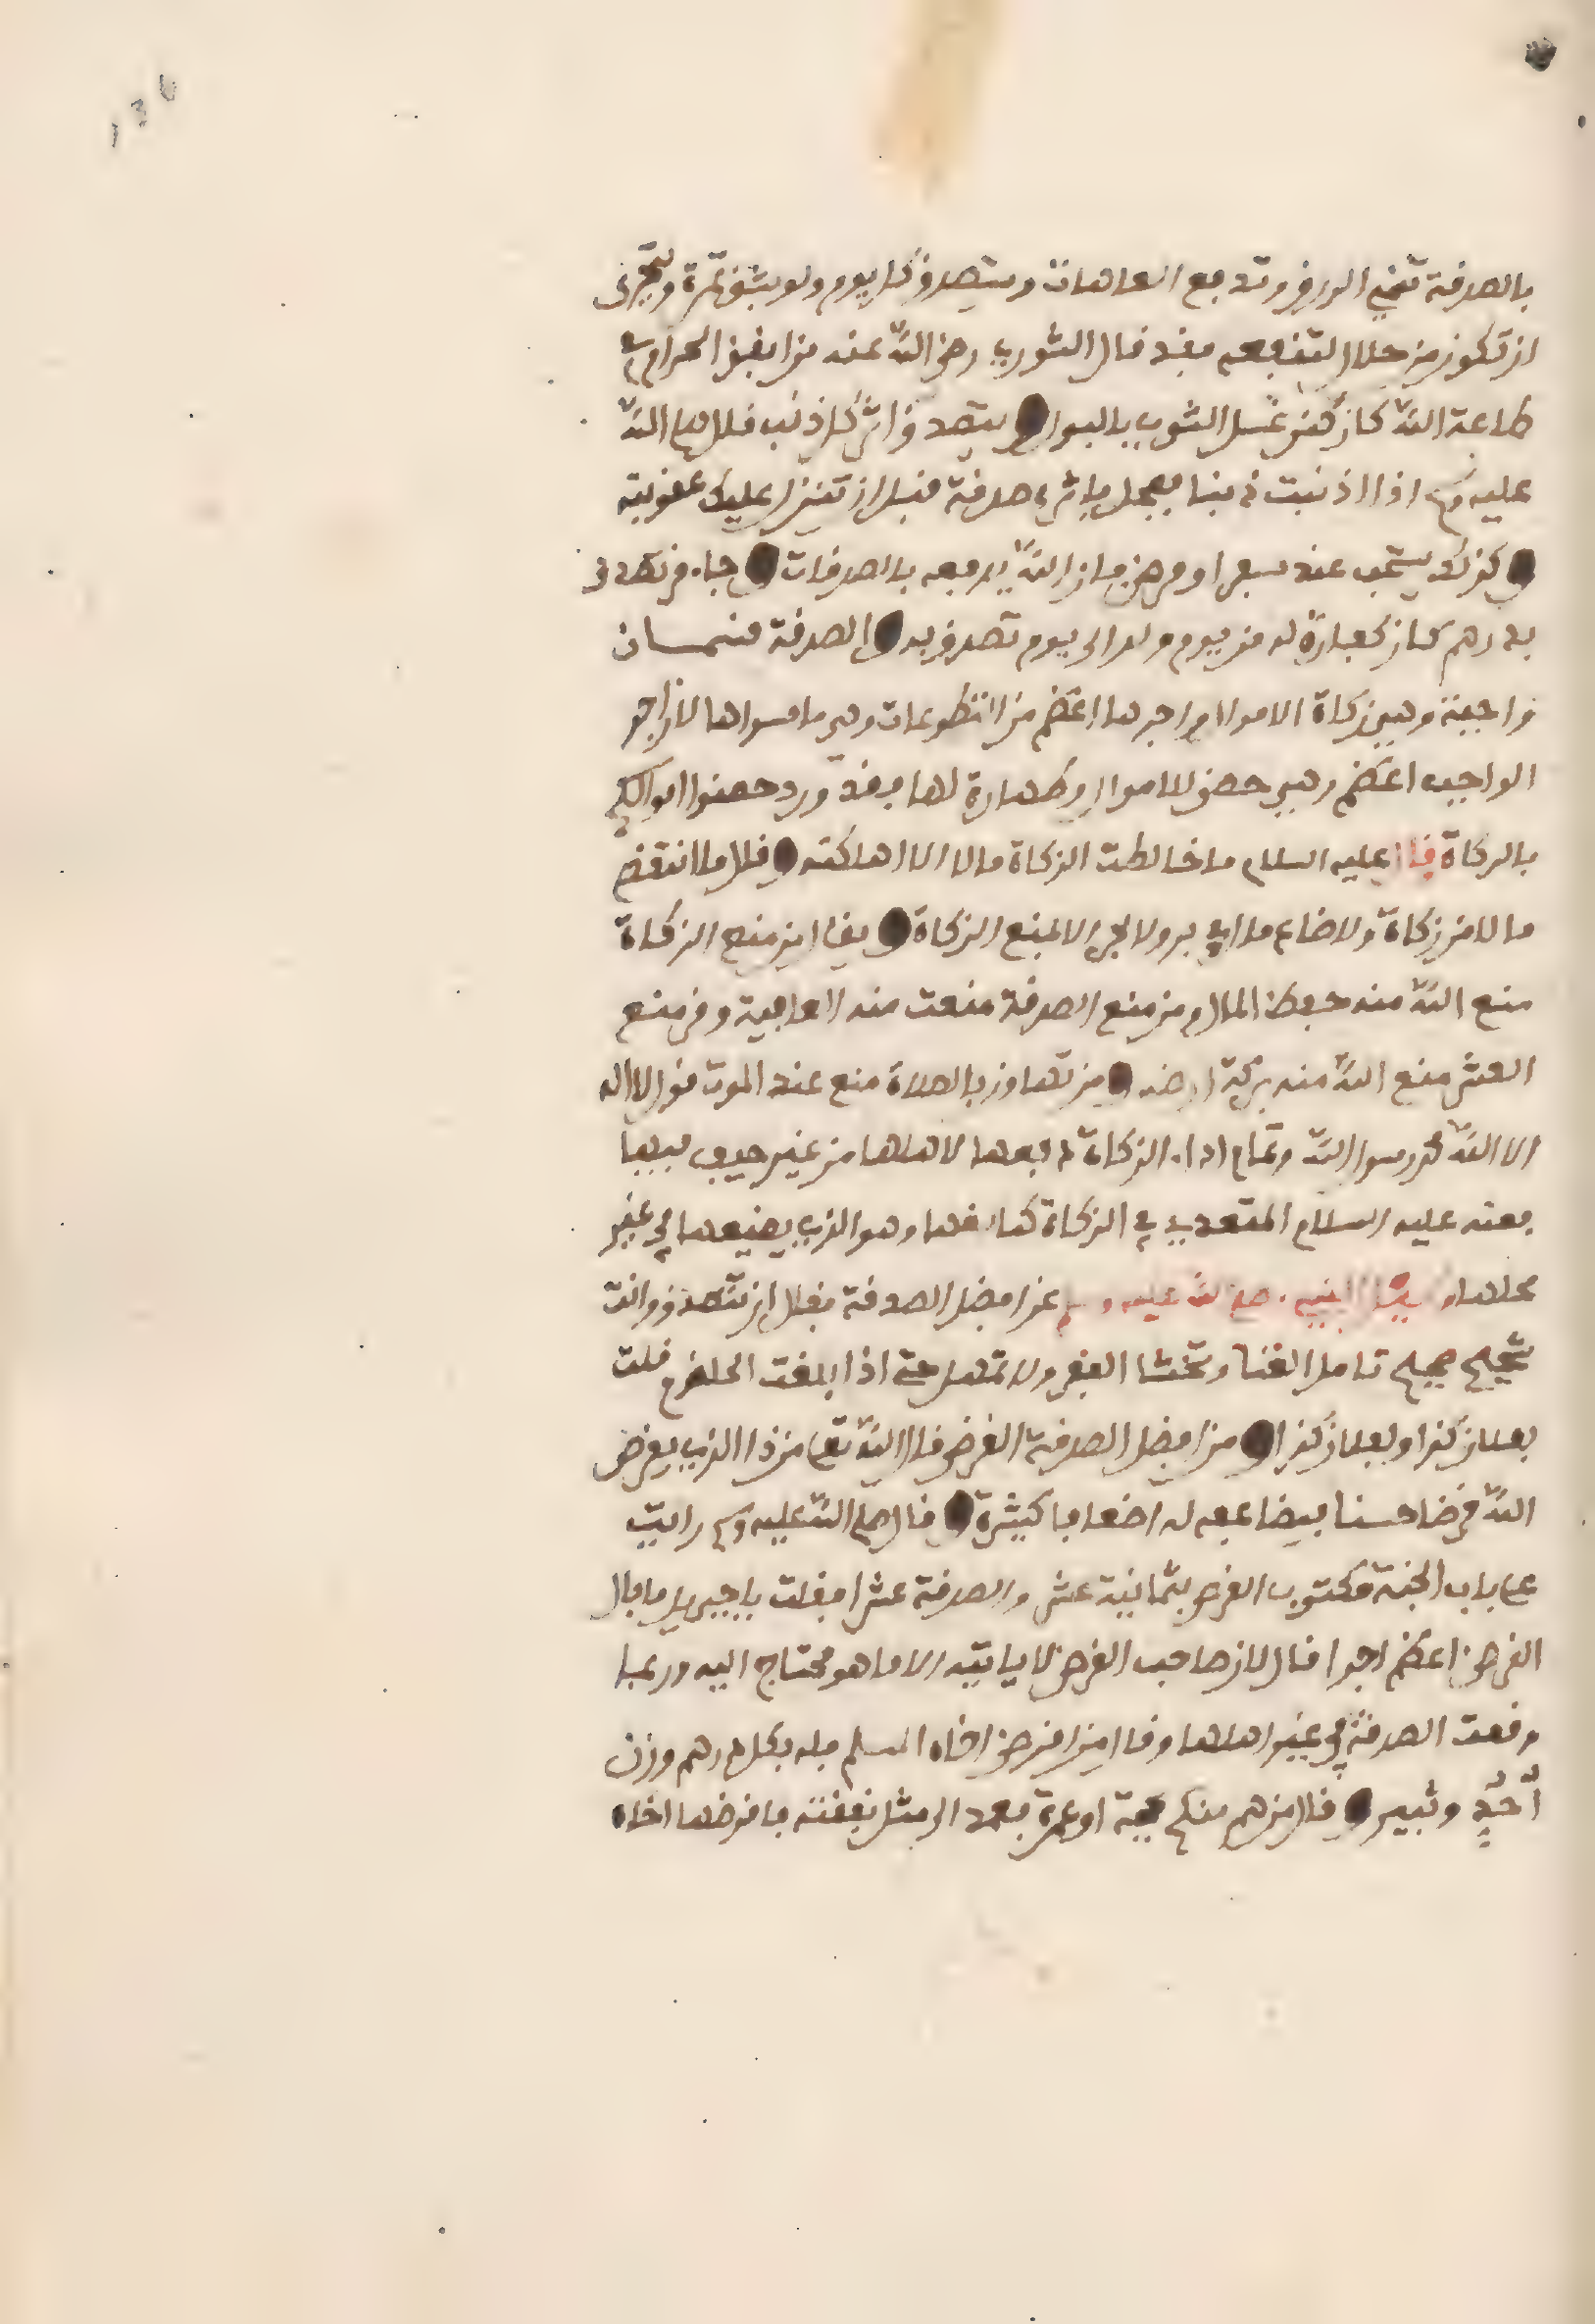 136
بالصدقة تنمي الرزق وتدفع العاهات ويتصدق كل يوم ولو بشق تمرة ويتحرى
ان تكون من حلال لتنفعه فقد قال الثوري رضي اللّه عنه من انفق الحرام في
طاعة اللّه كان كمن غسل الثوب بالبول ويتصدق اثر كل ذنب قال صلى اللّه
عليه وسلم اذا اذنبت ذنبا فعجل باثره صدقة قبل ان تنزل عليك عقوبته
وكذلك يستحب عند سفر او مرض فان اللّه يدفعه بالصدقات وجاء من تصدق
بدرهم كان كفارة له من يوم ولد الى يوم تصدق به والصدقة قسمان
واجبة وهي زكاة الاموال واجرها اعظم من التطوعات وهي ما سواها لان اجر
الواجب اعظم وهي حصن للاموال وطهارة لها فقد ورد حصنوا اموالكم
بالزكاة قال عليه السلام ما خالطت الزكاة مالا الا اهلكته وقال ما انتقص
مالا من زكاة ولا ضاع مال في بر ولا بحر الا لمنع الزكاة ويقال من منع الزكاة
منع اللّه منه حفظ المال ومن منع الصدقة منعت منه العافية ومن منع
العشر منع اللّه منه بركة ارضه ومن تهاون بالصلاة منع عند الموت قول لا اله
الا اللّه محمد رسول اللّه وتمام اداء الزكاة دفعها لاهلها من غير حيف فيها
فعنه عليه السلام المتعدي في الزكاة كمانعها وهو الذي يضيعها في غير
محلها وسئل النبي صلى اللّه عليه وسلم عن افضل الصدقة فقال ان تتصدق وانت
شحيح صحيح تامل الغنا وتخشا الفقر ولا تمهل حتى اذا بلغت الحلقوم قلت
لفلان كذا ولفلان كذا ومن افضل الصدقة القرض قال اللّه تعلى من ذا الذي يقرض
اللّه قرضا حسنا فيضاعفه له اضعافا كثيرة وقال صلى اللّه عليه وسلم رايت
على باب الجنة مكتوب القرض بثمانية عشر والصدقة عشرا فقلت يا جبريل ما بال
القرض اعظم اجرا قال لان صاحب القرض لا ياتيه الا ما هو محتاج اليه وربما
وقعت الصدقة في غير اهلها وقال من اقرض اخاه المسلم فله بكل درهم وزن
أُحُدٍ وثبير وقال من هم منكم بحجة او عمرة فعمد الى مثل نفقته فاقرضها اخاه